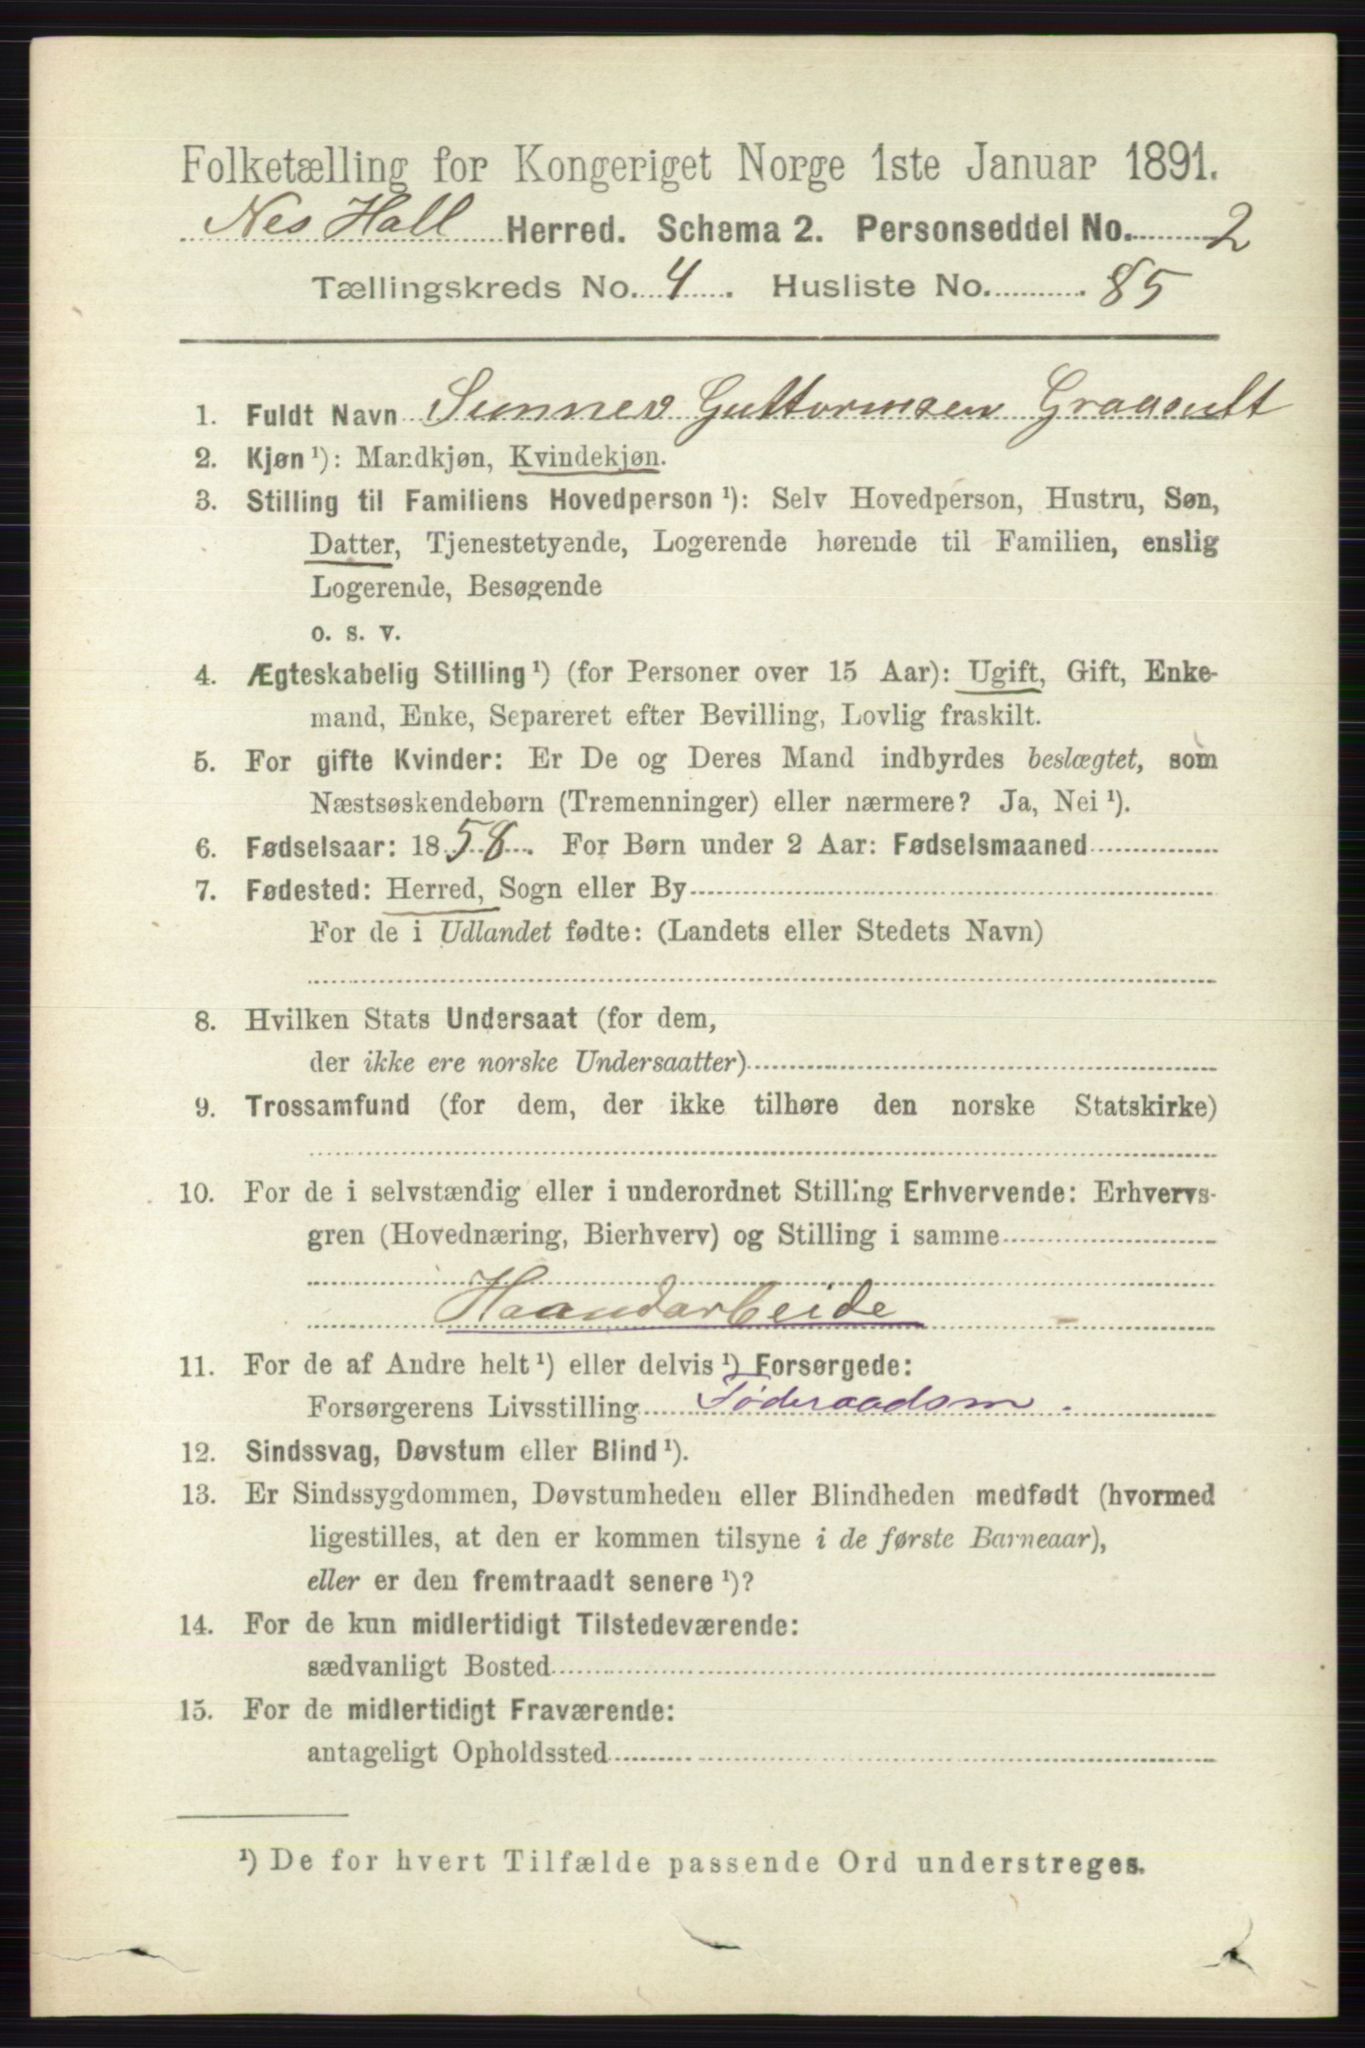 Folketælling for Kongeriget Norge 1ste Januar 1891.
Nes Hall Herred. Schema 2. Personseddel No. 2
Tællingskreds No. 4. Husliste No. 85
1. Fuldt Navn Sunnev Guttormsen Graasult
2. Kjøn ¹): Mandkjøn, Kvindekjøn.
3. Stilling til Familiens Hovedperson ¹): Selv Hovedperson, Hustru, Søn,
Datter, Tjenestetyende, Logerende hørende til Familien, enslig
Logerende, Besøgende
o. s. v.
4. Ægteskabelig Stilling ¹) (for Personer over 15 Aar): Ugift, Gift, Enke-
mand, Enke, Separeret efter Bevilling, Lovlig fraskilt.
5. For gifte Kvinder: Er De og Deres Mand indbyrdes beslægtet, som
Næstsøskendebørn (Tremenninger) eller nærmere? Ja, Nei ¹).
6. Fødselsaar: 1858. For Børn under 2 Aar: Fødselsmaaned
7. Fødested: Herred, Sogn eller By
For de i Udlandet fødte: (Landets eller Stedets Navn)
8. Hvilken Stats Undersaat (for dem,
der ikke ere norske Undersaatter)
9. Trossamfund (for dem, der ikke tilhøre den norske Statskirke)
10. For de i selvstændig eller i underordnet Stilling Erhvervende: Erhvervs-
gren (Hovednæring, Bierhverv) og Stilling i samme
Haandarbeide
11. For de af Andre helt ¹) eller delvis ¹) Forsørgede:
Forsørgerens Livsstilling Føderaadsm.
12. Sindssvag, Døvstum eller Blind ¹).
13. Er Sindssygdommen, Døvstumheden eller Blindheden medfødt (hvormed
ligestilles, at den er kommen tilsyne i de første Barneaar),
eller er den fremtraadt senere ¹)?
14. For de kun midlertidigt Tilstedeværende:
sædvanligt Bosted
15. For de midlertidigt Fraværende:
antageligt Opholdssted
¹) De for hvert Tilfælde passende Ord understreges.